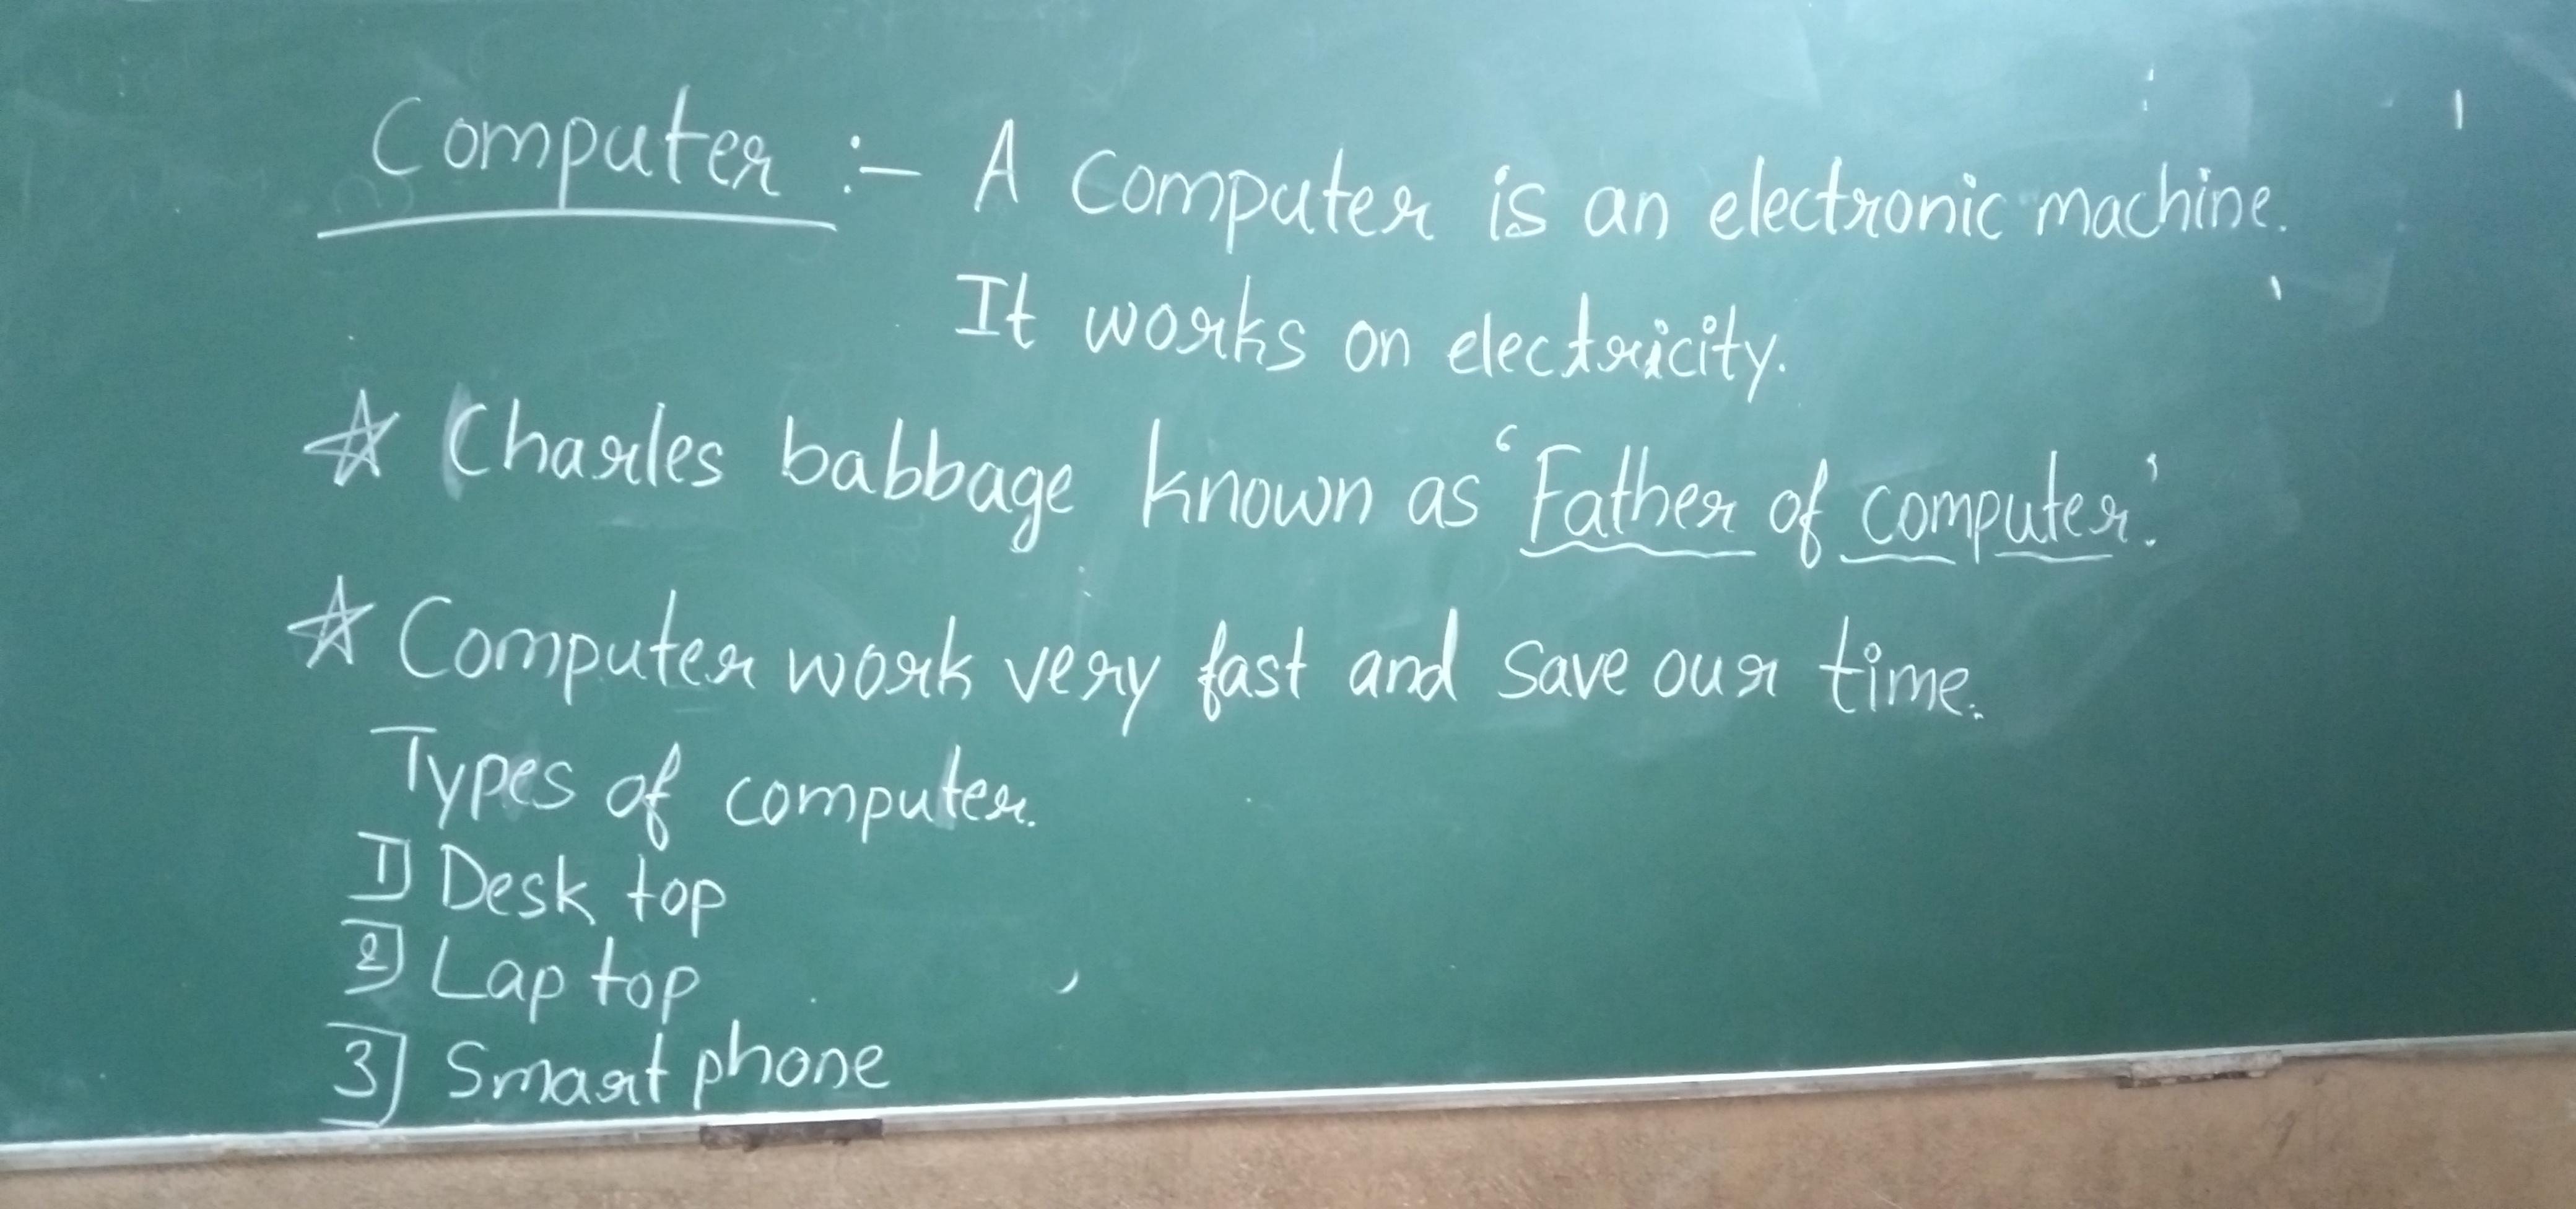 Computer :- A Computer is an electronic machine.
It works on electricity.
☆ Charles babbage known as 'Father of computer.'
☆ Computer work very fast and save our time.
Types of computer.
1] Desk top
2] Lap top
3] Smart phone